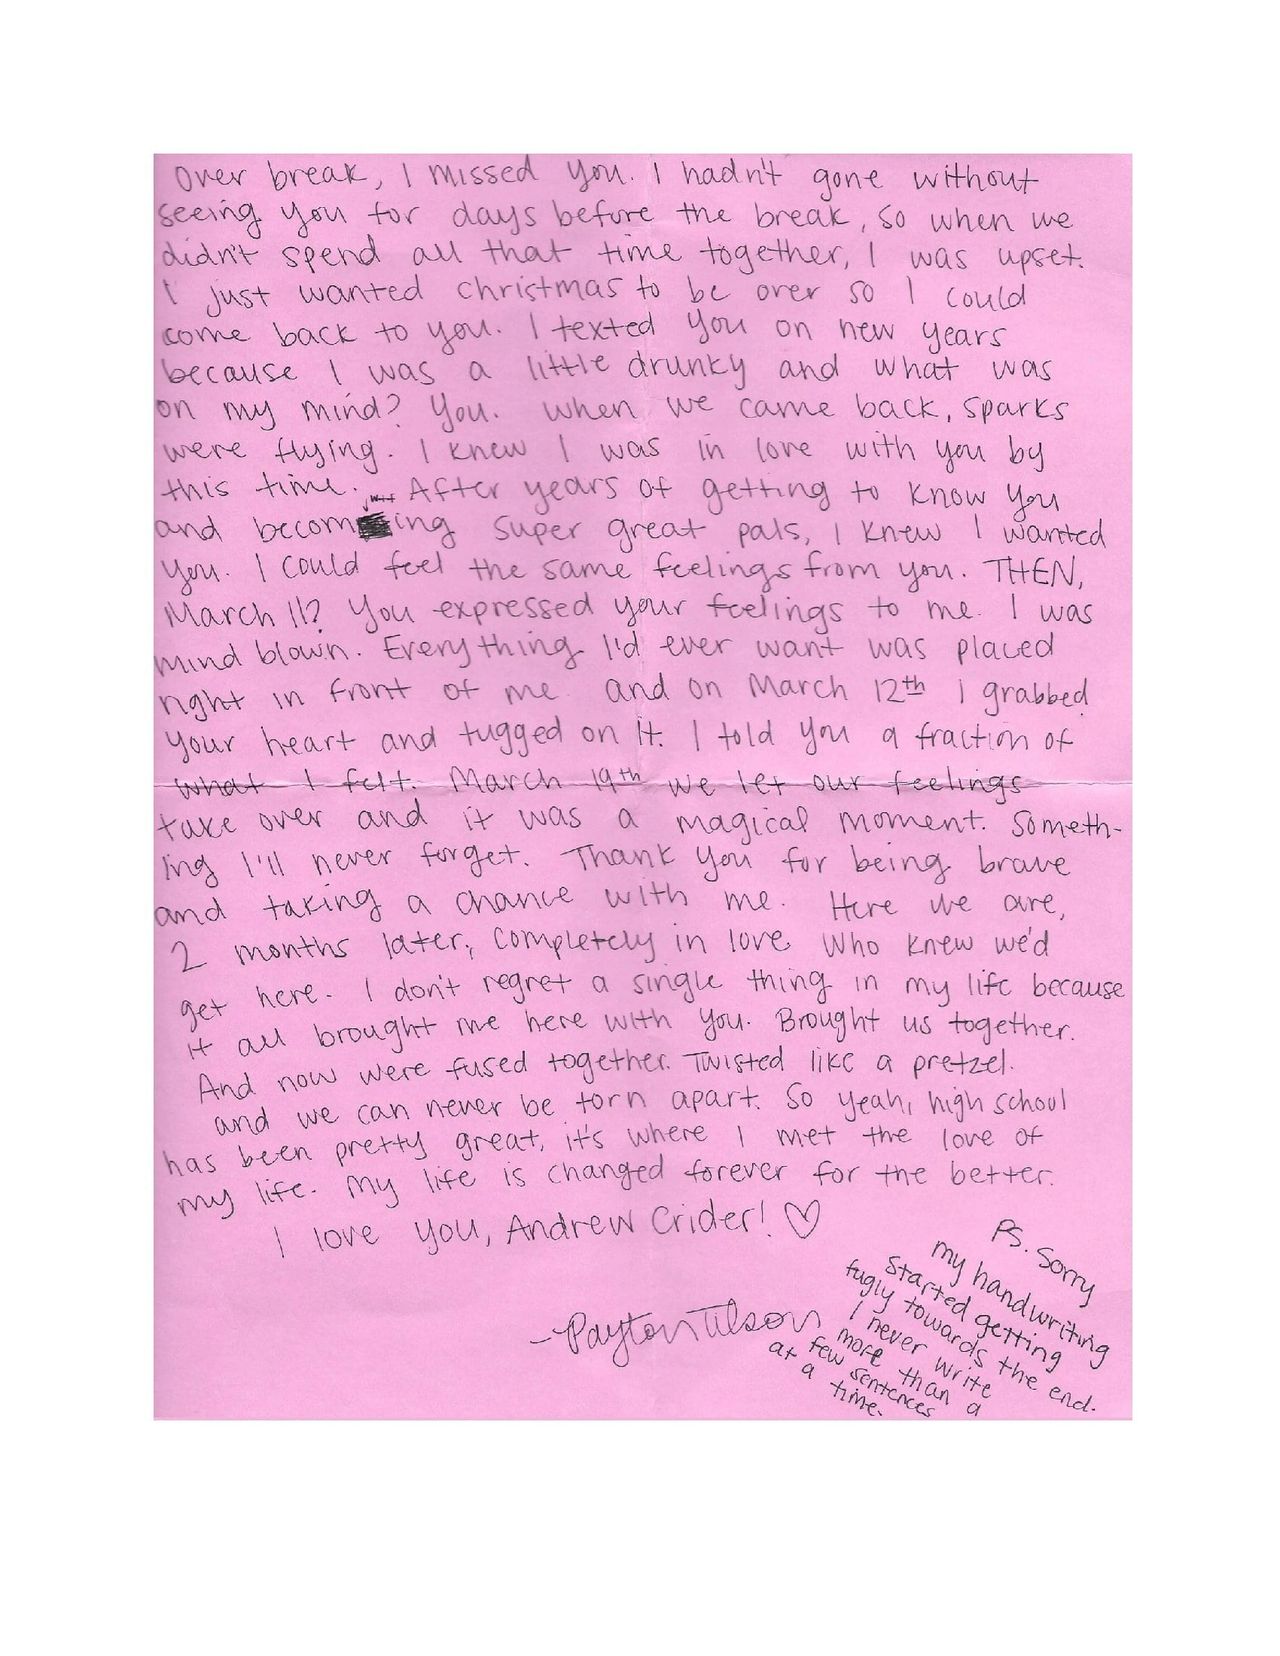 Over break, I missed you. I hadn't gone without
seeing you for days before the break, so when we
didn't spend all that time together, I was upset.
I just wanted christmas to be over so I could
come back to you. I texted you on new years
because I was a little drunky and what was
on my mind? You. When we came back, sparks
were flying. I knew I was in love with you by
this time. After years of getting to know you
and becoming super great pals, I knew I wanted
you. I could feel the same feelings from you. THEN,
March 11? You expressed your feelings to me. I was
mind blown. Everything I'd ever want was placed
right in front of me. and on March 12th I grabbed
your heart and tugged on it. I told you a fraction of
what I felt. March 19th we let our feelings
take over and it was a magical moment. Someth-
ing I'll never forget. Thank you for being brave
and taking a chance with me. Here we are,
2 months later, completely in love. Who knew we'd
get here. I don't regret a single thing in my life because
it all brought me here with you. Brought us together.
And now were fused together. Twisted like a pretzel.
and we can never be torn apart. So yeah, high school
has been pretty great, it's where I met the love of
my life. My life is changed forever for the better.
I love you, Andrew Crider! ♡
- Payton Tilson
PS. Sorry
my handwriting
started getting
fugly towards the end.
I never write
more than a
few sentences
at a time.